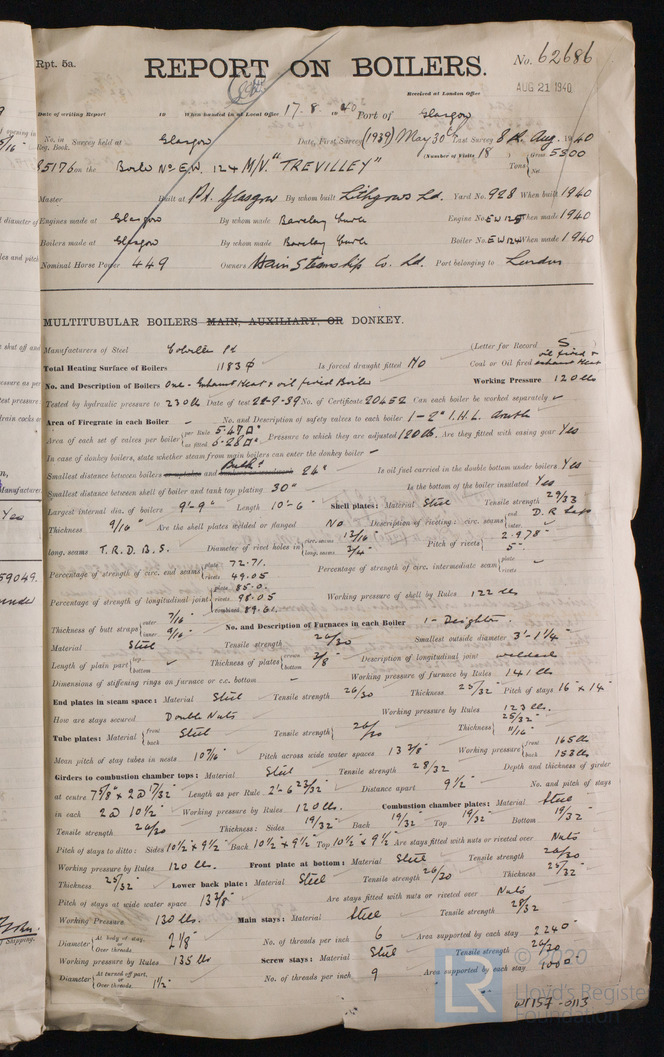 Rpt. 5a.
No. 62686
REPORT ON BOILERS.
Received at London Office
AUG 21 1940
Date of writing Report 19 When handed in at Local Office 17.8. 1940 Port of Glasgow
No. in Reg. Book. Survey held at Glasgow Date, First Survey (1939) May 30th Last Survey 8th Aug. 1940
(Number of Visits 18)
85176 on the Boiler No E.W. 124 M/V. "TREVILLEY" Tons Gross 5300 Net
Master Built at Pt. Glasgow By whom built Lithgows Ld. Yard No. 928 When built 1940
Engines made at Glasgow By whom made Barclay Curle Engine No. EW 125 When made 1940
Boilers made at Glasgow By whom made Barclay Curle Boiler No. EW124 When made 1940
Nominal Horse Power 449 Owners Hain Steamship Co. Ld. Port belonging to London
MULTITUBULAR BOILERS MAIN, AUXILIARY, OR DONKEY.
Manufacturers of Steel Colvilles Ld (Letter for Record S
Total Heating Surface of Boilers 1183 Is forced draught fitted No Coal or Oil fired oil fired & exhaust Heat
No. and Description of Boilers One - Exhaust Heat & oil fired Boiler Working Pressure 120 lbs
Tested by hydraulic pressure to 230 lb Date of test 28-9-39 No. of Certificate 20452 Can each boiler be worked separately
Area of Firegrate in each Boiler No. and Description of safety valves to each boiler 1-2" I.H.L. double
Area of each set of valves per boiler per Rule 5.47 as fitted 6.28 Pressure to which they are adjusted 120 lb. Are they fitted with easing gear Yes
In case of donkey boilers, state whether steam from main boilers can enter the donkey boiler
Smallest distance between boilers or uptakes and bunkers or woodwork Bulkh 24" Is oil fuel carried in the double bottom under boilers Yes
Smallest distance between shell of boiler and tank top plating 30" Is the bottom of the boiler insulated Yes
Largest internal dia. of boilers 9'-9" Length 10'-6" Shell plates: Material Steel Tensile strength 29/33
Thickness 9/16" Are the shell plates welded or flanged No Description of riveting: circ. seams end D.R Lap inter.
long. seams T.R.D.B.S. Diameter of rivet holes in circ. seams 13/16 long. seams 3/4" Pitch of rivets 2.978" 5"
Percentage of strength of circ. end seams plate 72.71. rivets 49.05 Percentage of strength of circ. intermediate seam plate rivets
Percentage of strength of longitudinal joint plate 85.0. rivets 98.05 combined 89.61. Working pressure of shell by Rules 122 lb
Thickness of butt straps outer 7/16" inner 9/16" No. and Description of Furnaces in each Boiler 1 - Deighton
Material Steel Tensile strength 26/30 Smallest outside diameter 3'-1 1/4"
Length of plain part top bottom Thickness of plates crown bottom 3/8" Description of longitudinal joint welded
Dimensions of stiffening rings on furnace or c.c. bottom Working pressure of furnace by Rules 141 lb
End plates in steam space: Material Steel Tensile strength 26/30 Thickness 25/32" Pitch of stays 16" x 14"
How are stays secured Double Nuts Working pressure by Rules 123 lb.
Tube plates: Material front back Steel Tensile strength 26/30 Thickness 25/32" 11/16"
Mean pitch of stay tubes in nests 10 7/16" Pitch across wide water spaces 13 3/8" Working pressure front 165 lb back 153 lb
Girders to combustion chamber tops: Material Steel Tensile strength 28/32 Depth and thickness of girder
at centre 7 5/8" x 2 @ 17/32" Length as per Rule 2'-6 23/32" Distance apart 9 1/2" No. and pitch of stays
in each 2 @ 10 1/2" Working pressure by Rules 120 lb. Combustion chamber plates: Material Steel
Tensile strength 26/30 Thickness: Sides 19/32" Back 19/32" Top 19/32" Bottom 19/32"
Pitch of stays to ditto: Sides 10 1/2" x 9 1/2" Back 10 1/2" x 9 1/2" Top 10 1/2" x 9 1/2" Are stays fitted with nuts or riveted over Nuts
Working pressure by Rules 120 lb. Front plate at bottom: Material Steel Tensile strength 26/30
Thickness 25/32" Lower back plate: Material Steel Tensile strength 26/30 Thickness 25/32"
Pitch of stays at wide water space 13 3/8" Are stays fitted with nuts or riveted over Nuts
Working Pressure 130 lb. Main stays: Material Steel Tensile strength 28/32
Diameter At body of stay, or Over threads 2 1/8" No. of threads per inch 6 Area supported by each stay 224
Working pressure by Rules 135 lb Screw stays: Material Steel Tensile strength 26/30
Diameter At turned off part, or Over threads 1 1/2" No. of threads per inch 9 Area supported by each stay 100
© 2020
Lloyd's Register
Foundation
W1157-0113